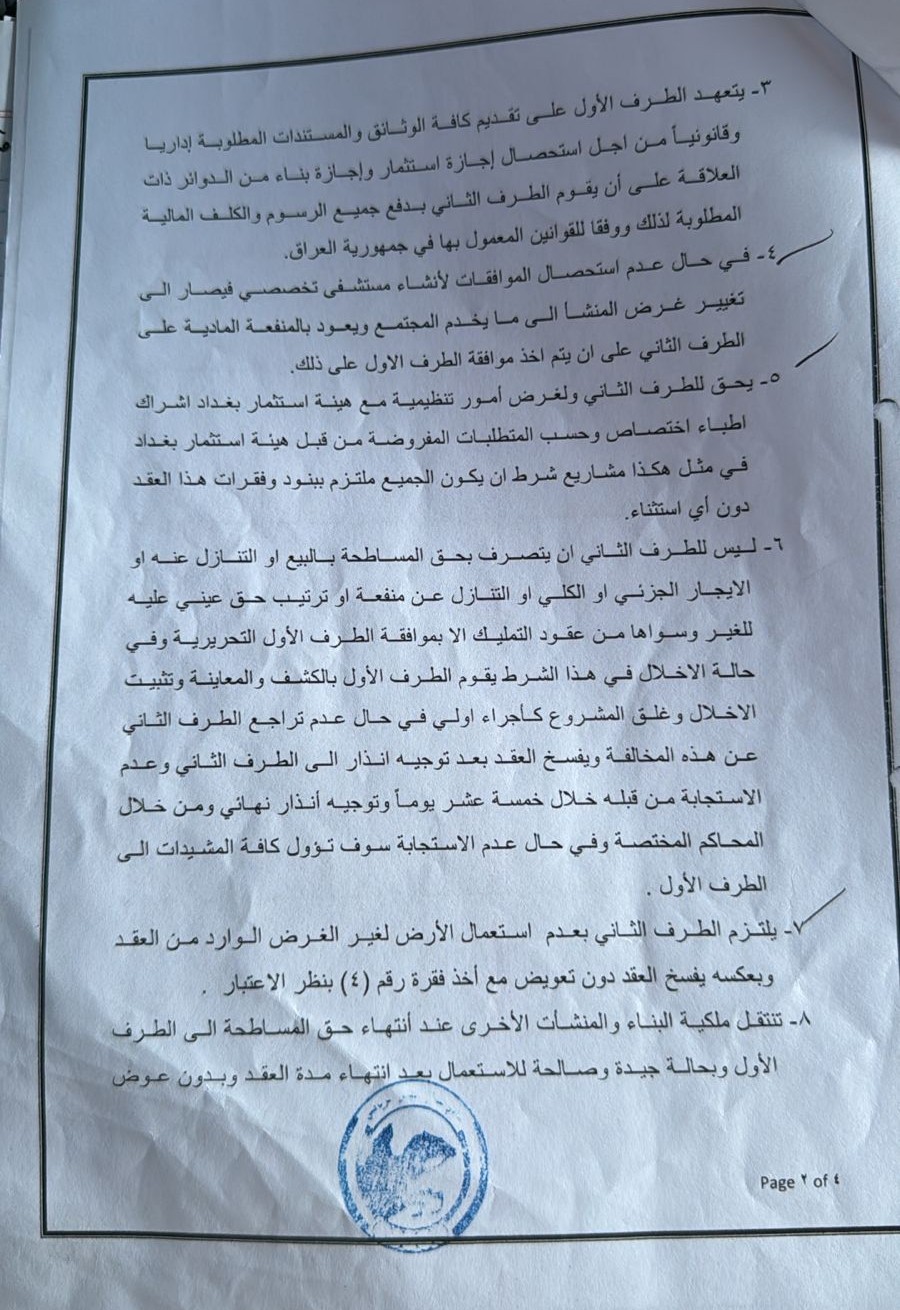 ٣- يتعهد الطرف الأول على تقديم كافة الوثائق والمستندات المطلوبة إداريا
وقانونياً من اجل استحصال إجازة استثمار وإجازة بناء من الدوائر ذات
العلاقة على أن يقوم الطرف الثاني بدفع جميع الرسوم والكلف المالية
المطلوبة لذلك ووفقا للقوانين المعمول بها في جمهورية العراق.
٤- في حال عدم استحصال الموافقات لأنشاء مستشفى تخصصي فيصار الى
تغيير غرض المنشأ الى ما يخدم المجتمع ويعود بالمنفعة المادية على
الطرف الثاني على ان يتم اخذ موافقة الطرف الاول على ذلك.
٥- يحق للطرف الثاني ولغرض أمور تنظيمية مع هيئة استثمار بغداد اشراك
اطباء اختصاص وحسب المتطلبات المفروضة من قبل هيئة استثمار بغداد
في مثل هكذا مشاريع شرط ان يكون الجميع ملتزم ببنود وفقرات هذا العقد
دون أي استثناء.
٦- ليس للطرف الثاني ان يتصرف بحق المساطحة بالبيع او التنازل عنه او
الايجار الجزئي او الكلي او التنازل عن منفعة او ترتيب حق عيني عليه
للغير وسواها من عقود التمليك الا بموافقة الطرف الأول التحريرية وفي
حالة الاخلال في هذا الشرط يقوم الطرف الأول بالكشف والمعاينة وتثبيت
الاخلال وغلق المشروع كأجراء اولي في حال عدم تراجع الطرف الثاني
عن هذه المخالفة ويفسخ العقد بعد توجيه انذار الى الطرف الثاني وعدم
الاستجابة من قبله خلال خمسة عشر يوماً وتوجيه أنذار نهائي ومن خلال
المحاكم المختصة وفي حال عدم الاستجابة سوف تؤول كافة المشيدات الى
الطرف الأول .
٧- يلتزم الطرف الثاني بعدم استعمال الأرض لغير الغرض الوارد من العقد
وبعكسه يفسخ العقد دون تعويض مع أخذ فقرة رقم (٤) بنظر الاعتبار .
٨- تنتقل ملكية البناء والمنشأت الأخرى عند أنتهاء حق المساطحة الى الطرف
الأول وبحالة جيدة وصالحة للاستعمال بعد انتهاء مدة العقد وبدون عوض
Page ٢ of ٤